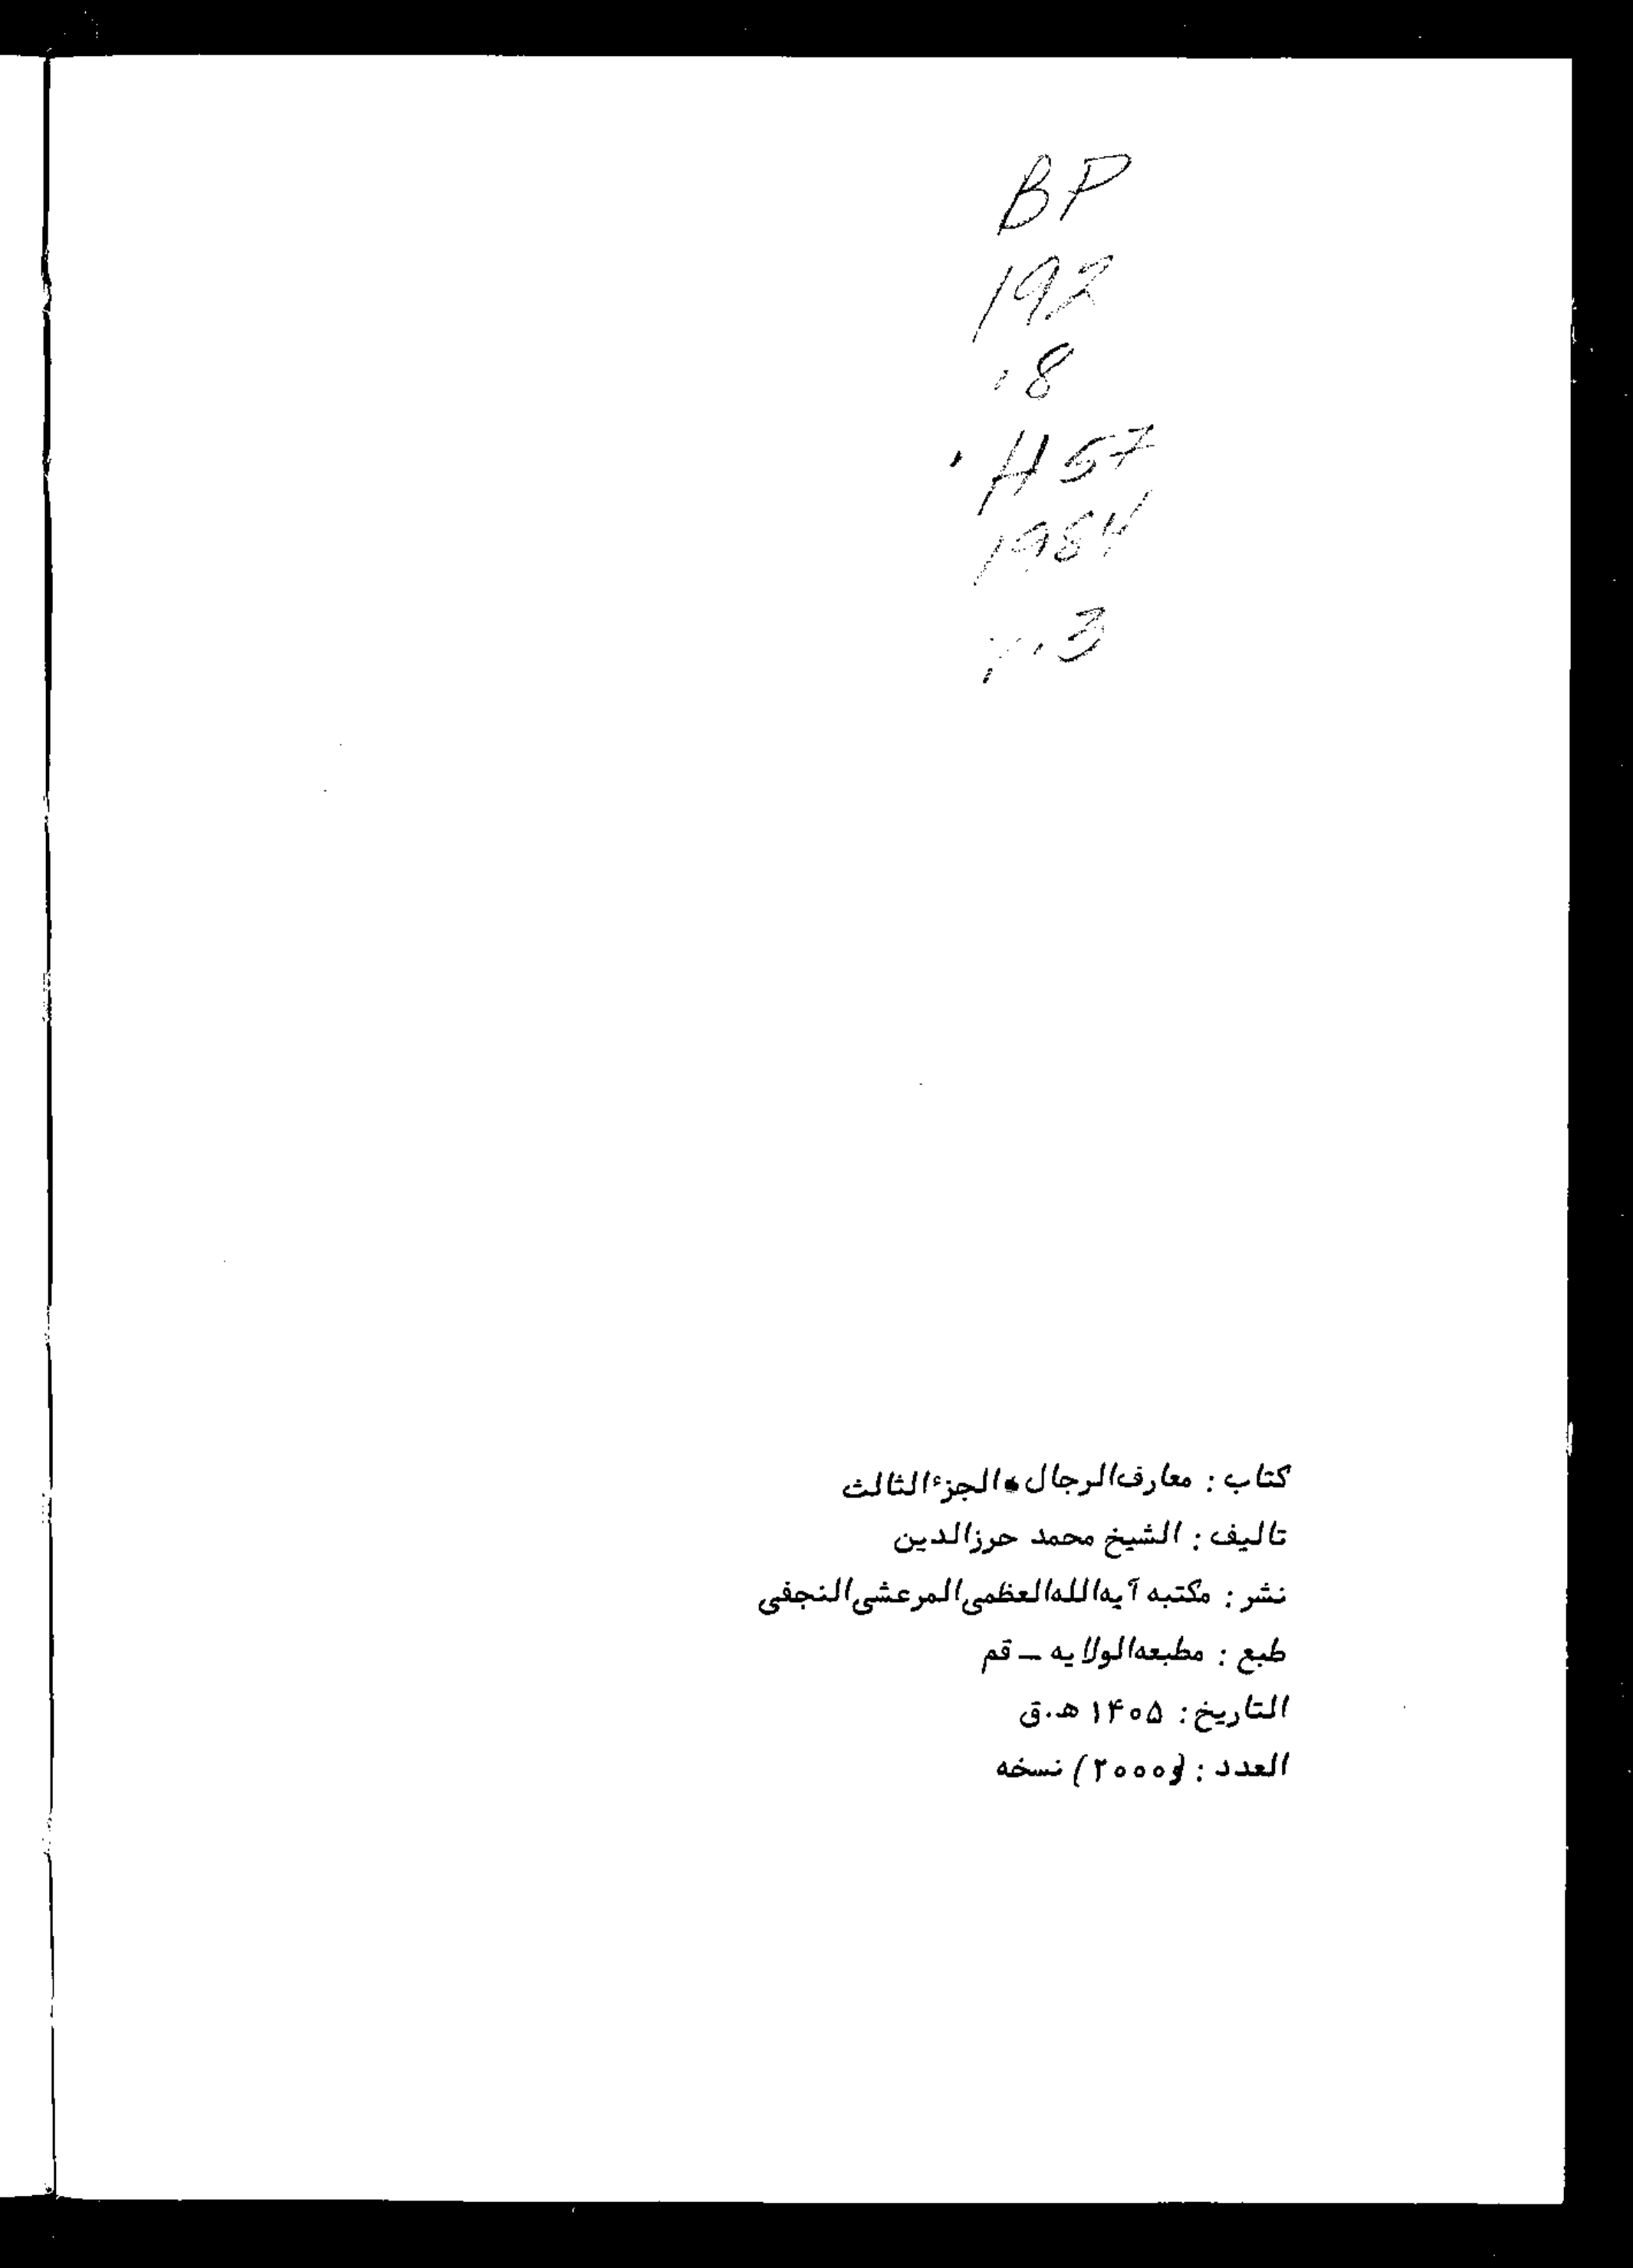 BP
192
.8
.H57
1984
v.3
كتاب : معارف الرجال * الجزء الثالث
تاليف : الشيخ محمد حرزالدين
نشر : مكتبه آيه الله العظمى المرعشى النجفى
طبع : مطبعه الولايه – قم
التاريخ : ۱۴۰۵ ه.ق
العدد : (۲۰۰۰) نسخه